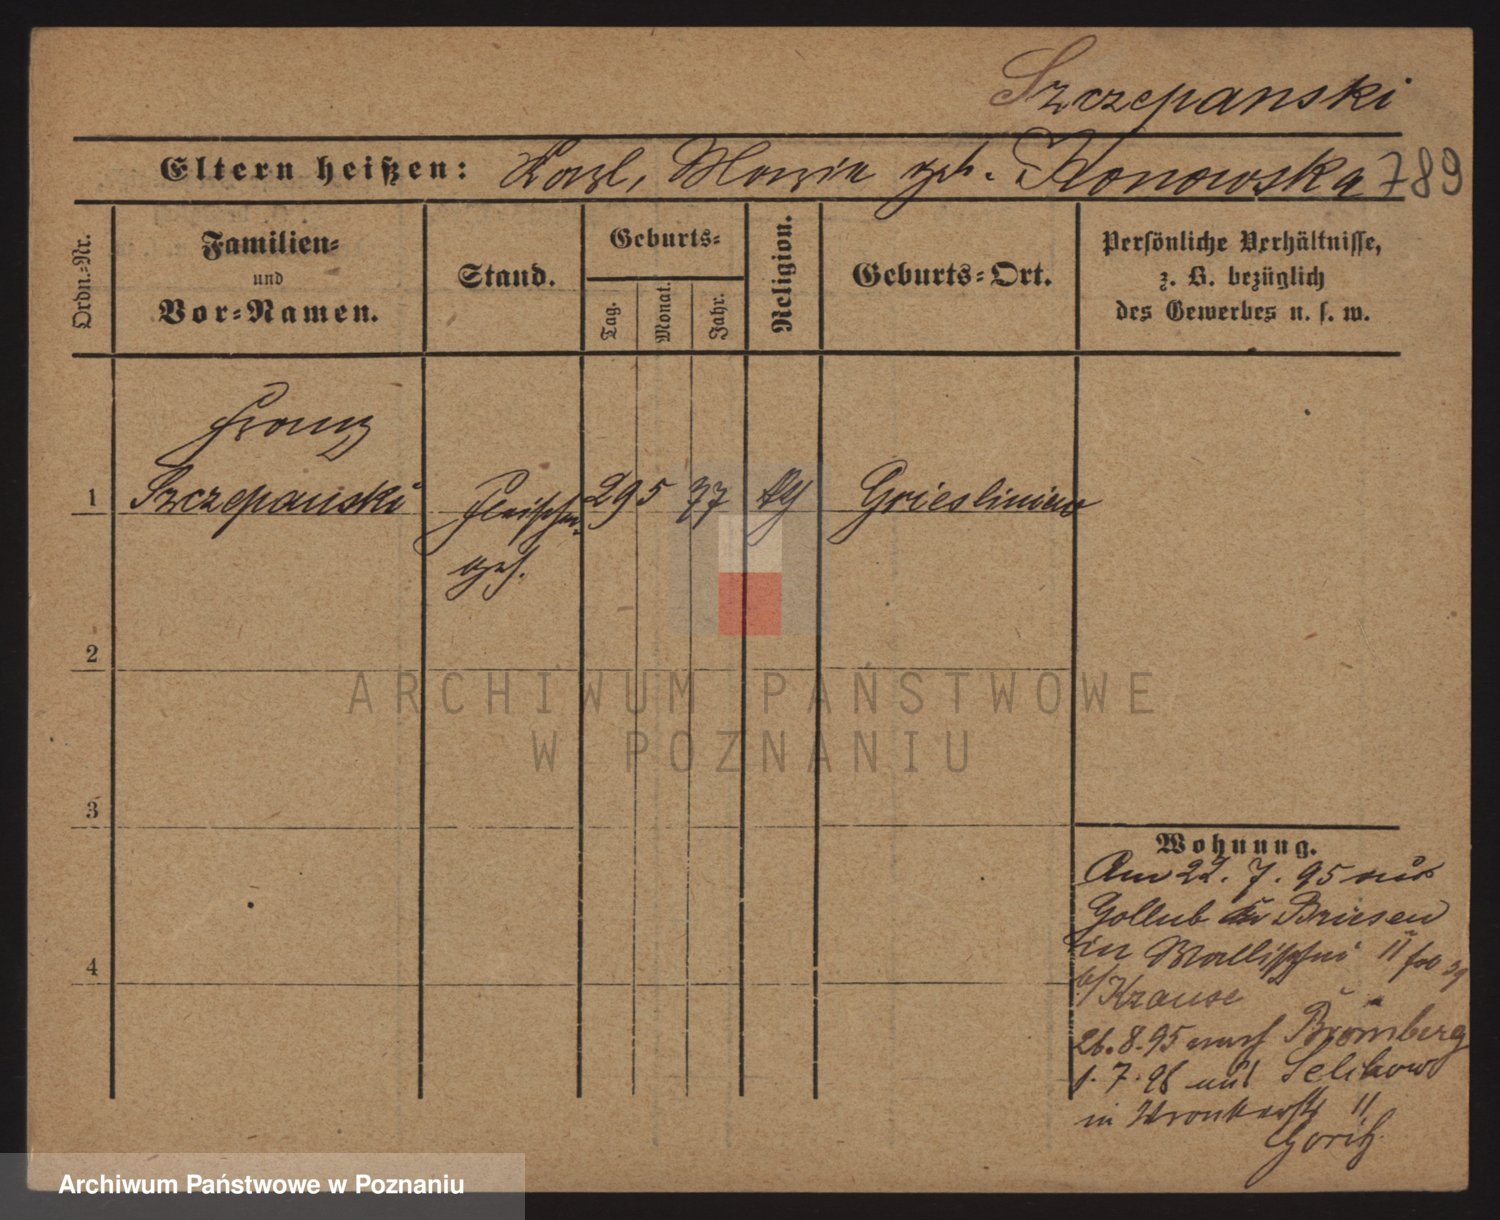 Szczepanski
Eltern heißen: Karl, Maria geb. Konowska 789
Ordn.-Nr.
Familien-
und
Vor-Namen.
Stand.
Geburts-
Tag.
Monat.
Jahr.
Religion.
Geburts-Ort.
Persönliche Verhältnisse,
z. B. bezüglich
des Gewerbes u. s. w.
Franz
1 Szczepanski Fleischer- 29 5 77 Grieslinien
ges.
2
3
4
Wohnung.
Am 22. 7. 95 aus
Gollub Briesen
in Wallischei 11
b/ Krause
26. 8. 95 nach Bromberg
1. 7. 96 aus
in Wronkerstr 11
ARCHIWUM PAŃSTWOWE
W POZNANIU
Archiwum Państwowe w Poznaniu